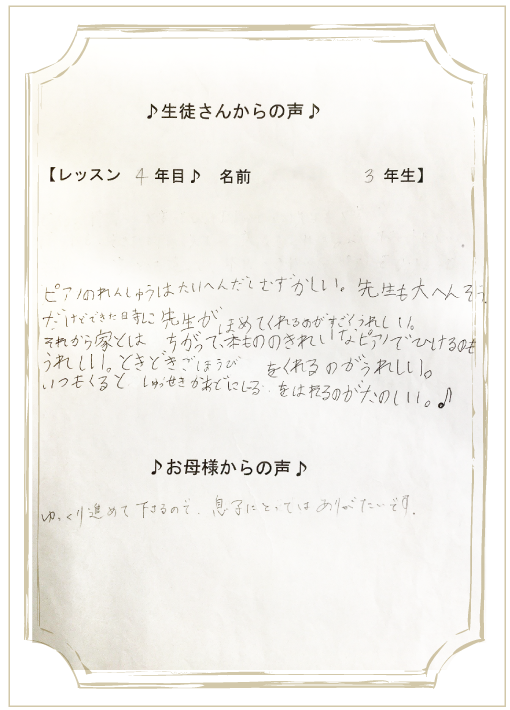 ♪生徒さんからの声♪
【レッスン 4 年目♪ 名前 3 年生】
ピアノのれんしゅうはたいへんだしむずかしい。先生も大へんそう。
だけどできた日時に先生がほめてくれるのがすごくうれしい。
それから家とは ちがって、本もののきれいなピアノでひけるのも
うれしい。ときどきごほうび をくれるのがうれしい。
いつもくると しゅっせきかあどにしーる をはれるのがたのしい。♪
♪お母様からの声♪
ゆっくり進めて下さるので、息子にとってはありがたいです。